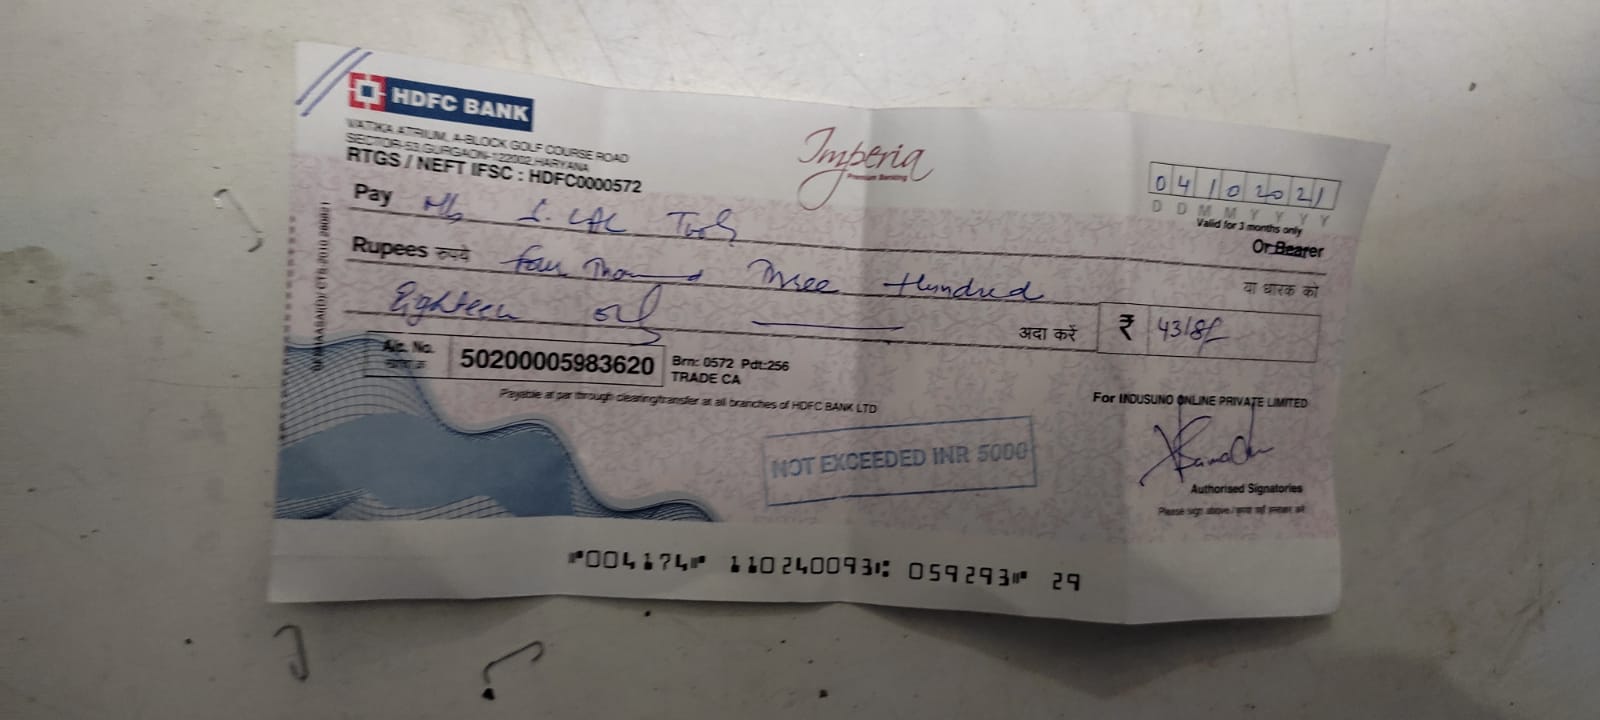 HDFC BANK
VATIKA ATRIUM, A-BLOCK GOLF COURSE ROAD
SECTOR-53, GURGAON-122002, HARYANA
RTGS / NEFT IFSC : HDFC0000572
Imperia
Premium Banking
04102021
D D M M Y Y Y Y
Valid for 3 months only
Pay M/s S. LAL Tools
Or Bearer
Rupees रुपये Four Thousand Three Hundred
या धारक को
Eighteen only
अदा करें ₹ 4318/-
A/c. No. 50200005983620
Brn: 0572 Pdt:256
TRADE CA
Payable at par through clearing/transfer at all branches of HDFC BANK LTD
For INDUSUNO ONLINE PRIVATE LIMITED
NOT EXCEEDED INR 5000
Authorised Signatories
Please sign above /
⑈004174⑈ 110240093⑆ 059293⑈ 29